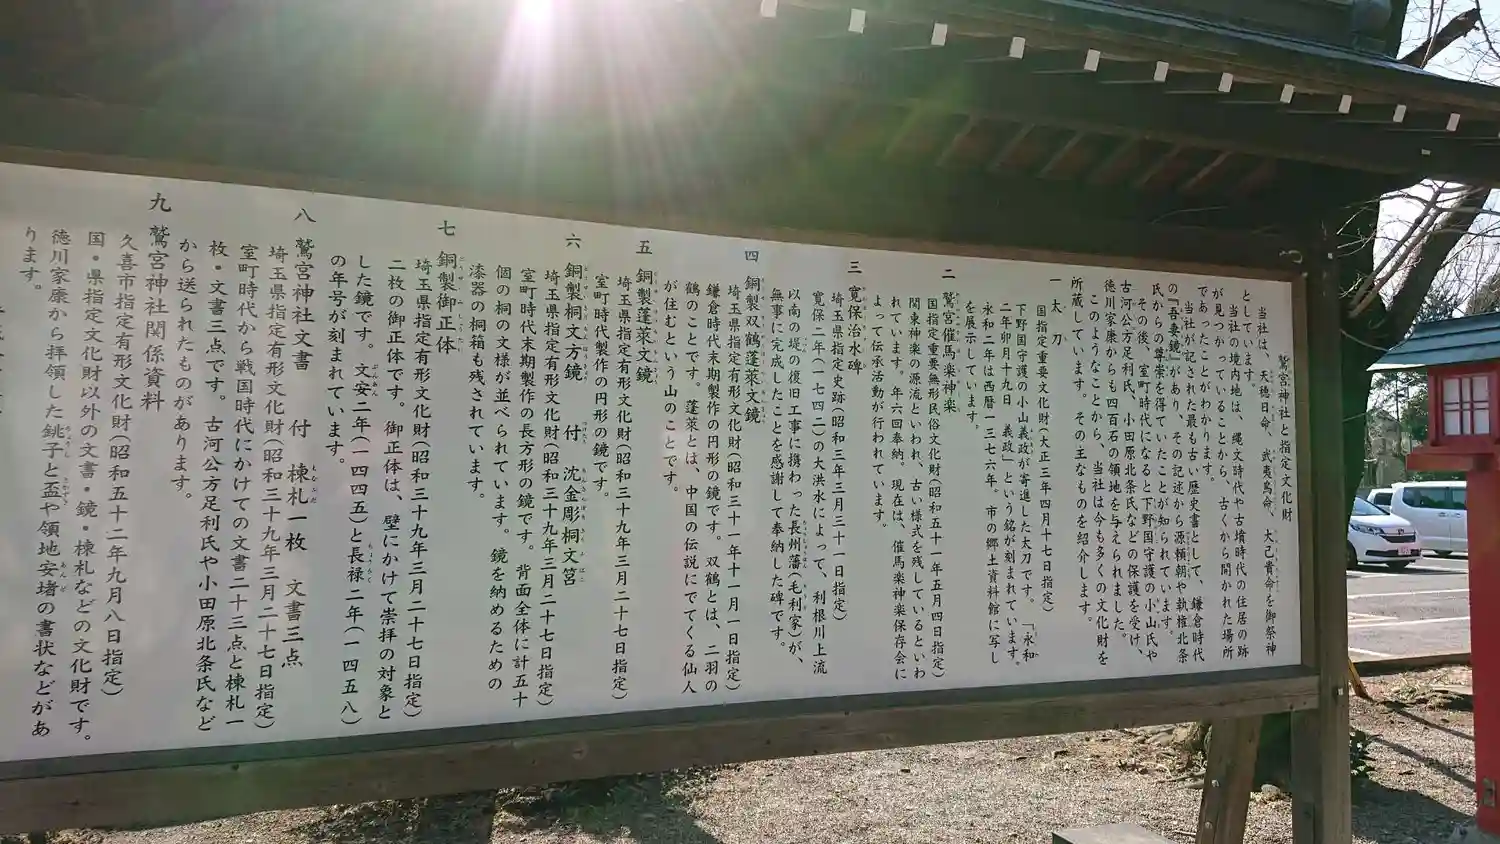 鷲宮神社と指定文化財
当社は、天穂日命、武夷鳥命、大己貴命を御祭神
としています。
当社の境内地は、縄文時代や古墳時代の住居の跡
が見つかっていることから、古くから開かれた場所
であったことがわかります。
当社が記された最も古い歴史書として、鎌倉時代
の『吾妻鏡』があり、その記述から源頼朝や執権北条
氏からの尊崇を得ていたことが知られています。
その後、室町時代になると下野国守護の小山氏や
古河公方足利氏、小田原北条氏などの保護を受け、
徳川家康からも四百石の領地を与えられました。
このようなことから、当社は今も多くの文化財を
所蔵しています。その主なものを紹介します。
一 太刀
国指定重要文化財(大正三年四月十七日指定)
下野国守護の小山義政が寄進した太刀です。「永和
二年卯月十九日 義政」という銘が刻まれています。
永和二年は西暦一三七六年。市の郷土資料館に写し
を展示しています。
二 鷲宮催馬楽神楽
国指定重要無形民俗文化財(昭和五十一年五月四日指定)
関東神楽の源流といわれ、古い様式を残しているといわ
れています。年六回奉納。現在は、催馬楽神楽保存会に
よって伝承活動が行われています。
三 寛保治水碑
埼玉県指定史跡(昭和三年三月三十一日指定)
寛保二年(一七四二)の大洪水によって、利根川上流
以南の堤の復旧工事に携わった長州藩(毛利家)が、
無事に完成したことを感謝して奉納した碑です。
四 銅製双鶴蓬莱文鏡
埼玉県指定有形文化財(昭和三十一年十一月一日指定)
鎌倉時代末期製作の円形の鏡です。双鶴とは、二羽の
鶴のことです。蓬莱とは、中国の伝説にでてくる仙人
が住むという山のことです。
五 銅製蓬莱文鏡
埼玉県指定有形文化財(昭和三十九年三月二十七日指定)
室町時代製作の円形の鏡です。
六 銅製桐文方鏡 付 沈金彫桐文筥
埼玉県指定有形文化財(昭和三十九年三月二十七日指定)
室町時代末期製作の長方形の鏡です。背面全体に計五十
個の桐の文様が並べられています。鏡を納めるための
漆器の桐箱も残されています。
七 銅製御正体
埼玉県指定有形文化財(昭和三十九年三月二十七日指定)
二枚の御正体です。御正体は、壁にかけて崇拝の対象と
した鏡です。文安二年(一四四五)と長禄二年(一四五八)
の年号が刻まれています。
八 鷲宮神社文書 付 棟札一枚 文書三点
埼玉県指定有形文化財(昭和三十九年三月二十七日指定)
室町時代から戦国時代にかけての文書二十三点と棟札一
枚・文書三点です。古河公方足利氏や小田原北条氏など
から送られたものがあります。
九 鷲宮神社関係資料
久喜市指定有形文化財(昭和五十二年九月八日指定)
国・県指定文化財以外の文書・鏡・棟札などの文化財です。
徳川家康から拝領した銚子と盃や領地安堵の書状などがあ
ります。